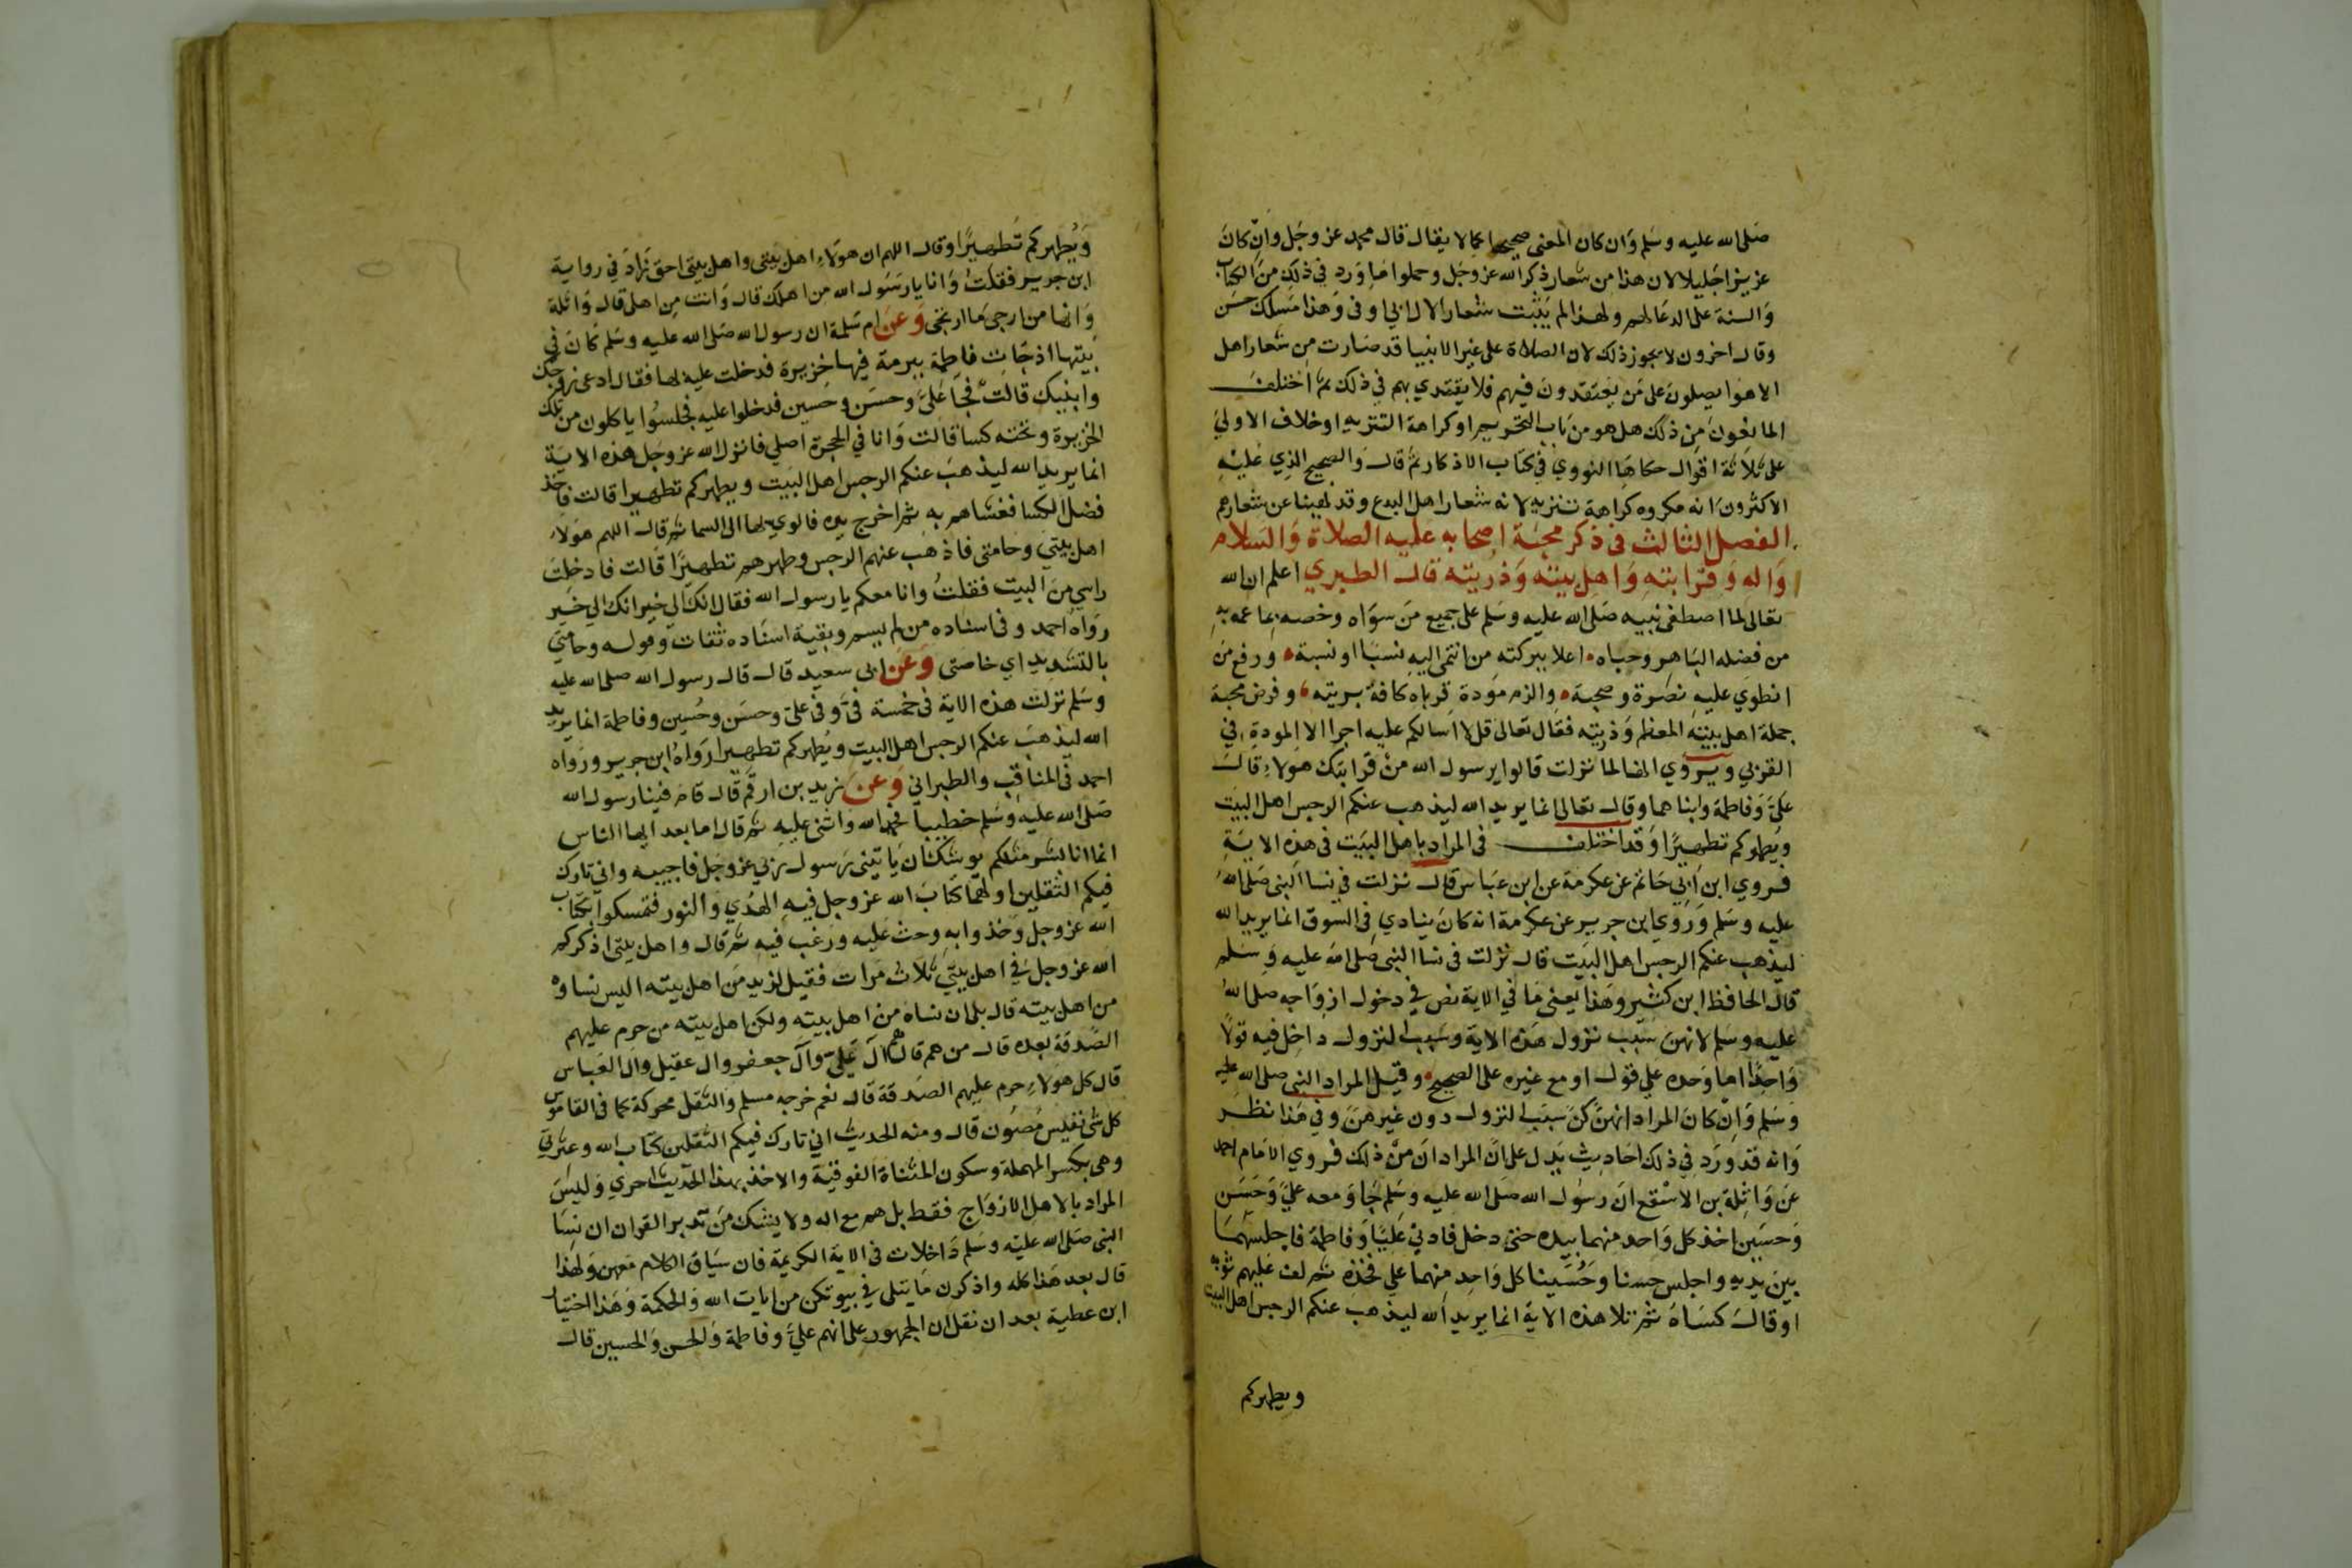 صلى الله عليه وسلم وان كان المعنى صحيحا كما لا يقال قال محمد عز وجل وان كان
عزيزا جليلا لان هذا من شعار ذكر الله عز وجل وحملوا ما ورد في ذلك من الكتاب
والسنة على الدعا لهم ولهذا لم يثبت شعارا لال ابي اوفى وهذا مسلك حسن
وقال اخرون لا يجوز ذلك لان الصلاة على غير الانبيا قد صارت من شعار اهل
الاهوا يصلون على من يعتقدون فيهم فلا يقتدي بهم في ذلك ثم اختلف
المانعون من ذلك هل هو من باب التحريم او كراهة التنزيه او خلاف الاولى
على ثلاثة اقوال حكاها النووي في كتاب الاذكار ثم قال والصحيح الذي عليه
الاكثرون انه مكروه كراهة تنزيه لانه شعار اهل البدع وقد نهينا عن شعارهم
الفصل الثالث في ذكر محبة اصحابه عليه الصلاة والسلام
واله وقرابته واهل بيته وذريته قال الطبري اعلم ان الله
تعالى لما اصطفى نبيه صلى الله عليه وسلم على جميع من سواه وخصه بما عمه به
من فضله الباهر وحباه اعلا ببركته من انتمى اليه نسبا او نسبة ورفع من
انطوى عليه نصرة وصحبة والزم مودة قرباه كافة بريته وفرض محبة
جملة اهل بيته المعظم وذريته فقال تعالى قل لا اسالكم عليه اجرا الا المودة في
القربى ويروي انها لما نزلت قالوا يرسول الله من قرابتك هولاء قال
علي وفاطمة وابناهما وقال تعالى انما يريد الله ليذهب عنكم الرجس اهل البيت
ويطهركم تطهيرا وقد اختلف في المراد باهل البيت في هذه الاية
فروي ابن ابي حاتم عن عكرمة عن ابن عباس قال نزلت في نسا النبي صلى الله
عليه وسلم وروي ابن جرير عن عكرمة انه كان ينادي في السوق انما يريد الله
ليذهب عنكم الرجس اهل البيت قال نزلت في نسا النبي صلى الله عليه وسلم
قال الحافظ ابن كثير وهذا يعني ما في الاية نص في دخول ازواجه صلى الله
عليه وسلم لانهن سبب نزول هذه الاية وسبب النزول داخل فيه قولا
واحدا اما وحده على قول او مع غيره على الصحيح وقيل المراد النبي صلى الله عليه
وسلم وان كان المراد انهن كن سبب النزول دون غيرهن وفي هذا نظر
وانه قد ورد في ذلك احاديث يدل على ان المراد ان من ذلك فروي الامام احمد
عن واثلة بن الاسقع ان رسول الله صلى الله عليه وسلم جا ومعه علي وحسن
وحسين اخذ كل واحد منهما بيده حتى دخل فادني عليا وفاطمة فاجلسهما
بين يديه واجلس حسنا وحسينا كل واحد منهما على فخذه ثم لف عليهم ثوبه
او قال كساه ثم تلا هذه الاية انما يريد الله ليذهب عنكم الرجس اهل البيت
ويطهركم
ويطهركم تطهيرا وقال اللهم ان هولاء اهل بيتي واهل بيتي احق زاد في رواية
ابن جرير فقلت وانا يا رسول الله من اهلك قال وانت من اهلي قال واثلة
وانها من ارجى ما ارتجى وعن ام سلمة ان رسول الله صلى الله عليه وسلم كان في
بيتها اذ جات فاطمة ببرمة فيها خزيرة فدخلت عليه بها فقال ادعى زوجك
وابنيك قالت فجا علي وحسن وحسين فدخلوا عليه فجلسوا ياكلون من تلك
الخزيرة وتحته كسا قالت وانا في الحجرة اصلي فانزل الله عز وجل هذه الاية
انما يريد الله ليذهب عنكم الرجس اهل البيت ويطهركم تطهيرا قالت فاخذ
فضل الكسا فغشاهم به ثم اخرج يده فالوي بها الى السما ثم قال اللهم هولاء
اهل بيتي وحامتي فاذهب عنهم الرجس وطهرهم تطهيرا قالت فادخلت
راسي من البيت فقلت وانا معكم يا رسول الله فقال انك الى خير انك الى خير
رواه احمد وفي اسناده من لم يسم وبقية اسناده ثقات وقوله وحامتي
بالتشديد اي خاصتي وعن ابي سعيد قال قال رسول الله صلى الله عليه
وسلم نزلت هذه الاية في خمسة في وفي علي وحسن وحسين وفاطمة انما يريد
الله ليذهب عنكم الرجس اهل البيت ويطهركم تطهيرا رواه ابن جرير ورواه
احمد في المناقب والطبراني وعن زيد بن ارقم قال قام فينا رسول الله
صلى الله عليه وسلم خطيبا فحمد الله واثنى عليه ثم قال اما بعد ايها الناس
انما انا بشر مثلكم يوشك ان ياتيني رسول ربي عز وجل فاجيبه واني تارك
فيكم الثقلين اولهما كتاب الله عز وجل فيه الهدي والنور فتمسكوا بكتاب
الله عز وجل وخذوا به وحث عليه ورغب فيه ثم قال واهل بيتي اذكركم
الله عز وجل في اهل بيتي ثلاث مرات فقيل لزيد من اهل بيته اليس نساوه
من اهل بيته قال بلى ان نساه من اهل بيته ولكن اهل بيته من حرم عليهم
الصدقة بعده قال من هم قال هم ال علي وال جعفر وال عقيل وال العباس
قال كل هولاء حرم عليهم الصدقة قال نعم خرجه مسلم والثقل محركة كما في القاموس
كل شي نفيس مصون قال ومنه الحديث اني تارك فيكم الثقلين كتاب الله وعترتي
وهي بكسر المهملة وسكون المثناة الفوقية والاخذ بهذا الحديث احري وليس
المراد بالاهل الازواج فقط بل هم مع اله ولا يشك من تدبر القران ان نسا
النبي صلى الله عليه وسلم داخلات في الاية الكريمة فان سياق الكلام معهن ولهذا
قال بعد هذا كله واذكرن ما يتلى في بيوتكن من ايات الله والحكمة وهذا اختيار
ابن عطية بعد ان نقل ان الجمهور على انهم علي وفاطمة والحسن والحسين قال